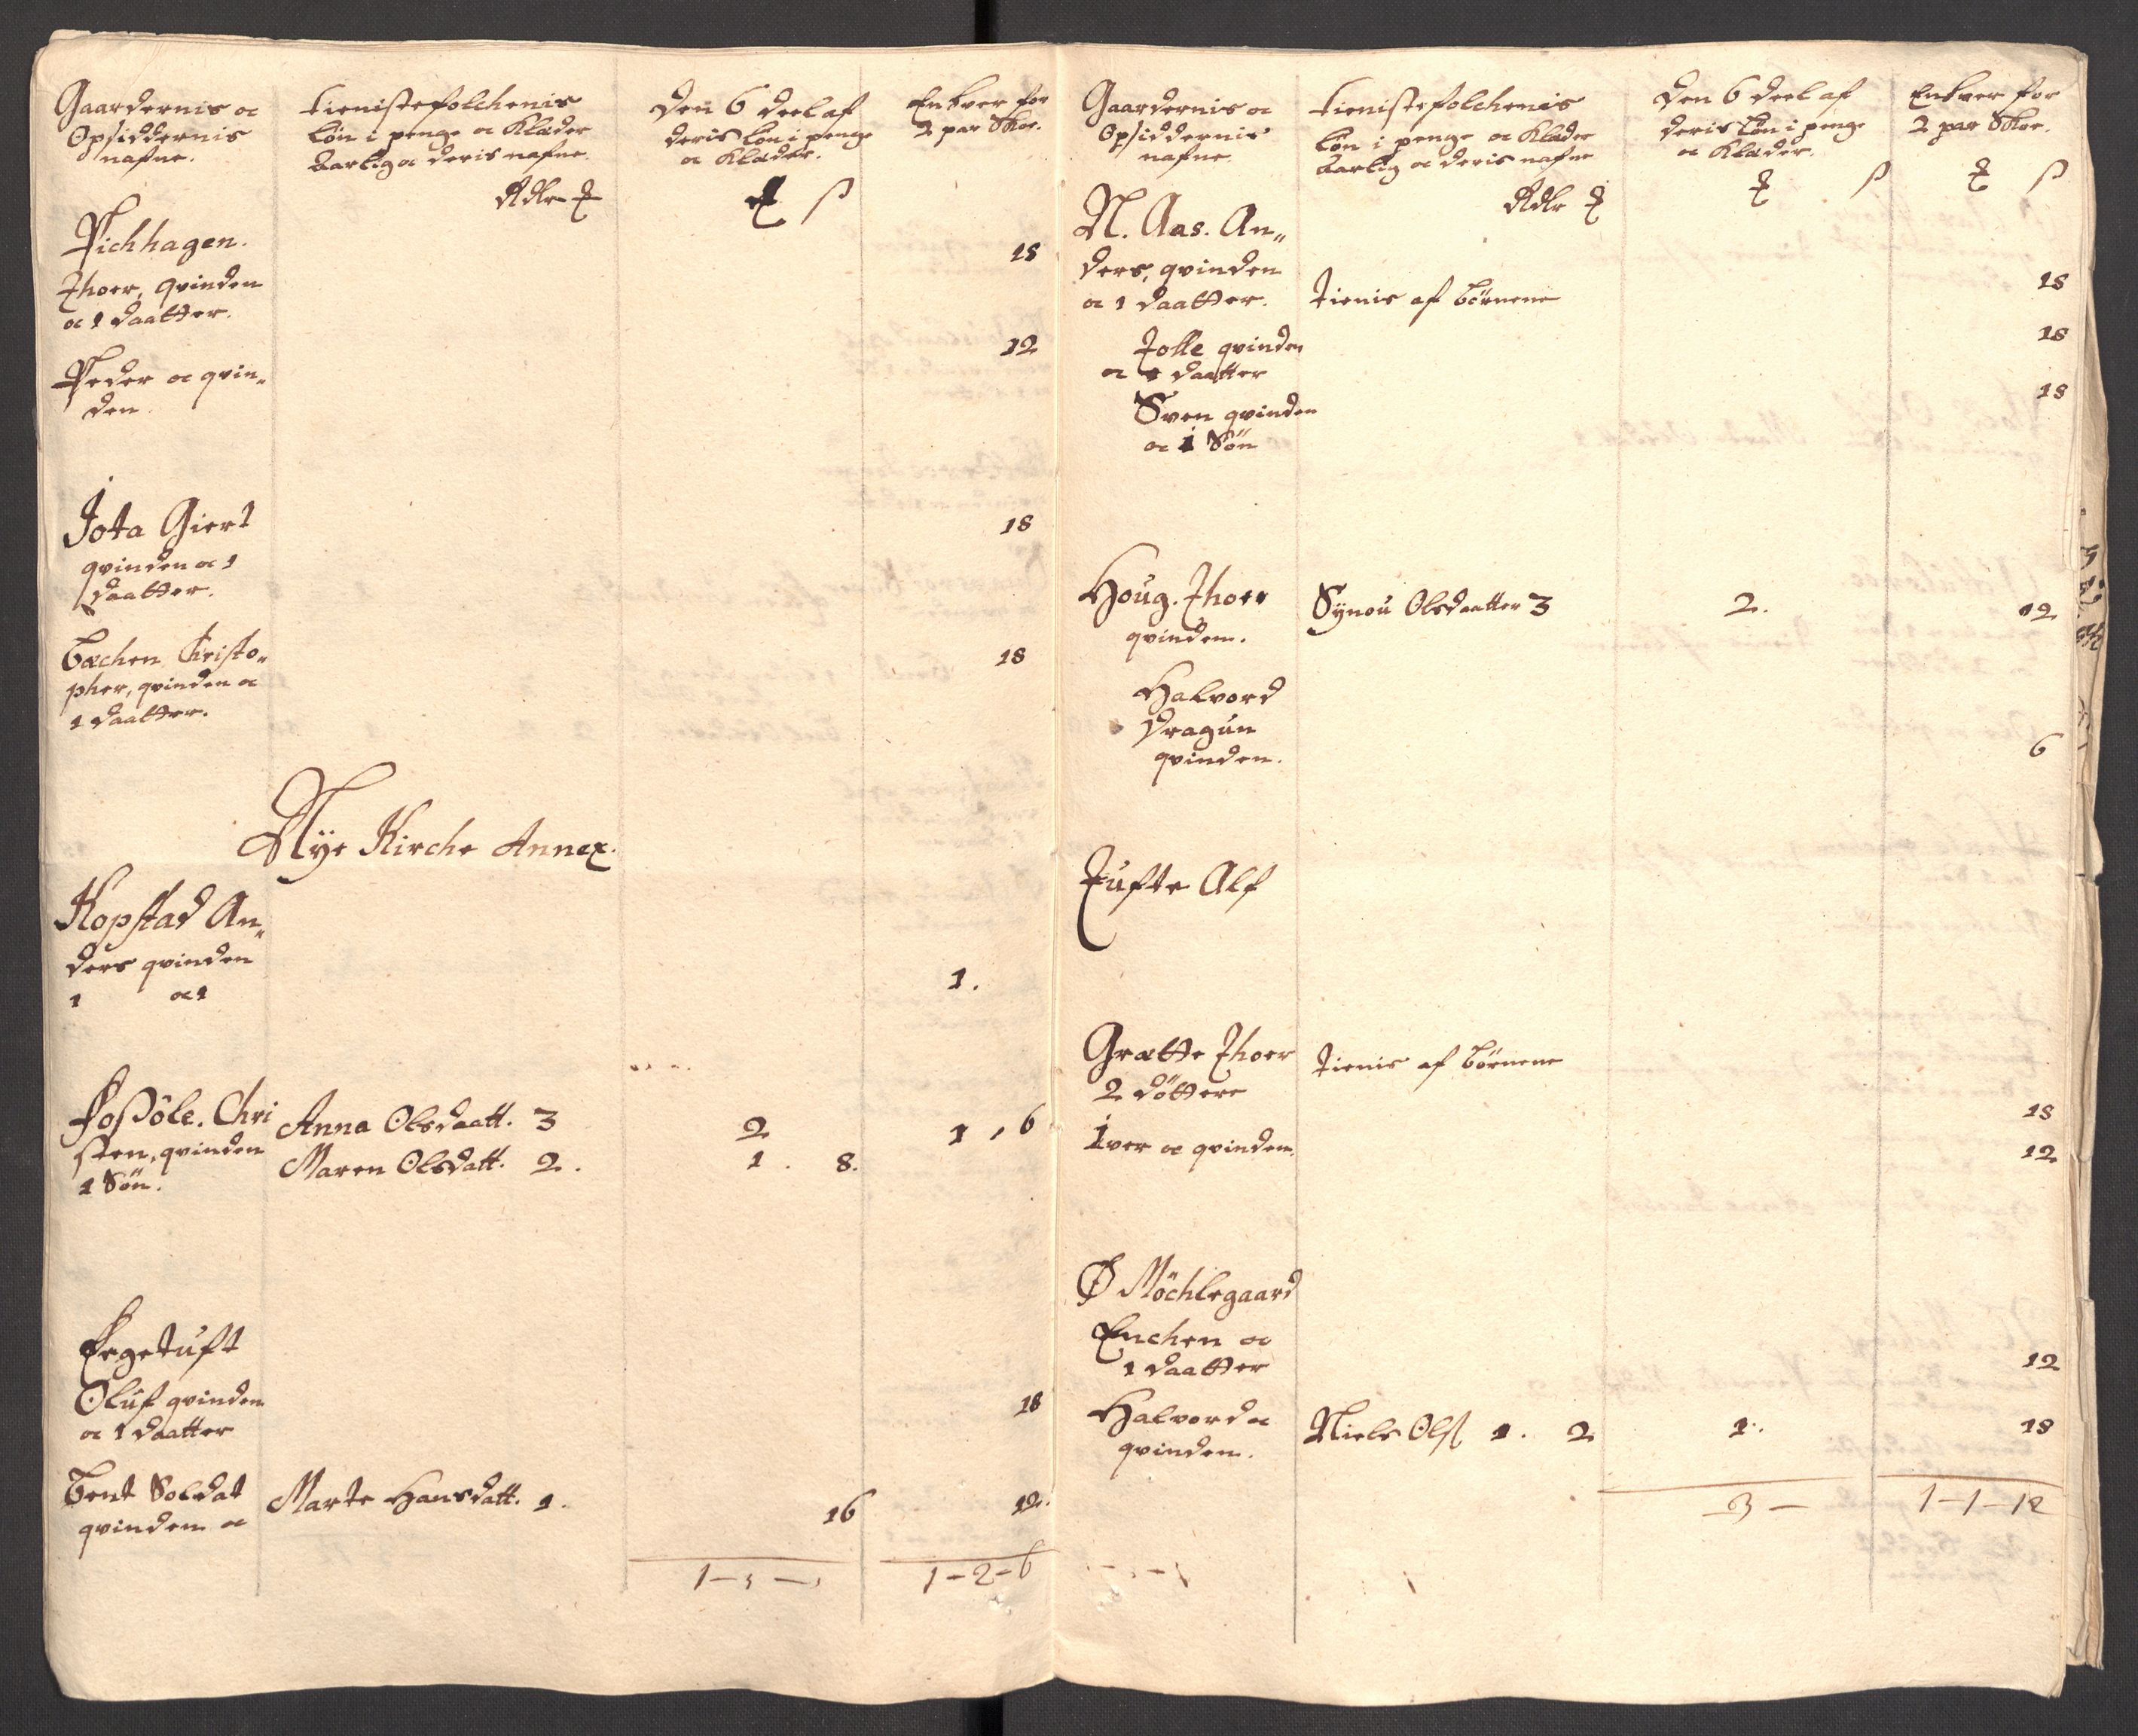 Gaardernis oc
Opsiddernis
nafne.
Tienistefolchenis
løn i penge oc Klæder
Aarlig oc deris nafne.
Den 6 deel af
deris løn i penge
oc Klæder.
Enhver for
2 par Skoe.
Rdlr
Pichhagen.
Thoer, qvinden
oc 1 daatter.
18
Peder oc qvin„
den.
12
Jota Giert
qvinden oc 1
daatter.
18
Bachen Christo„
pher, qvinden oc
1 daatter.
18
Nye Kirche Annex.
Kopstad An„
ders qvinden
1 oc 1
1.
Foßöle. Chri
sten, qvinden
1 Sön.
Anna Olsdaatt. 3
2
1 , 6
Maren Olsdatt. 2.
1 . 8.
Fegetuft
Oluf qvinden
oc 1 daatter
18
Bent Soldat
qvinden oc
Marte Hansdatt. 1.
16
12.
1-2-6
Gaardernis oc
Opsiddernis
nafne.
Tienistefolchenis
løn i penge oc Klæder
Aarlig oc deris nafne
Den 6 deel af
deris løn i penge
oc Klæder.
Enhver for
2 par Skoe.
Rdlr
N. Aas. An„
ders, qvinden
oc 1 daatter.
Tienis af börnene
18
Tolle qvinden
oc 1 daatter
18
Sven qvinden
oc 1 Sön
18
Houg. Thoer
qvinden.
Synou Olsdaatter 3
2.
12
Halvord
Dragun
qvinden.
6
Tufte Alf
Grætte Thoer
2 döttere
Tienis af börnene
18
Iver oc qvinden.
12
Ø Möchlegaard
Enchen oc
1 daatter
12
Halvord oc
qvinden.
Niels Olß 1. 2
1.
18
3 —
1-1-12